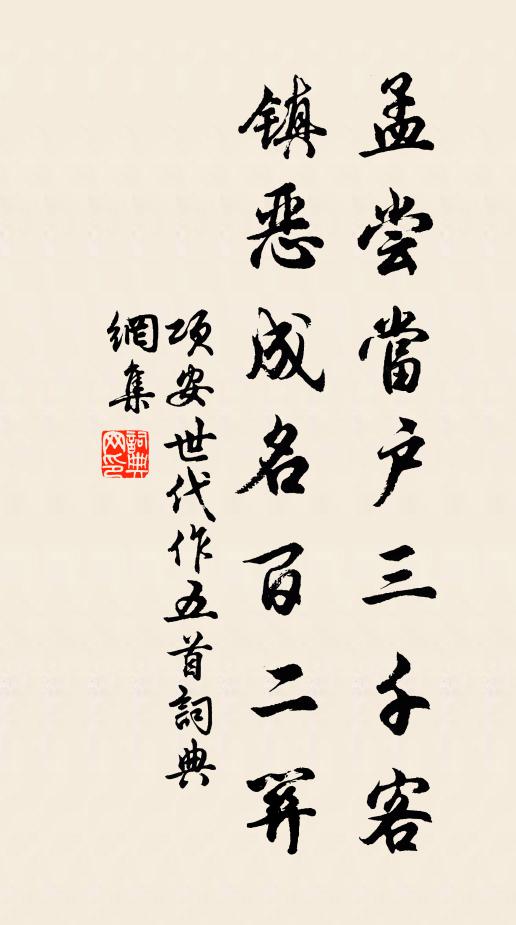 孟尝當户三千客
镇恶成名百二
项安世代作五首詞典
網集
詞典网印